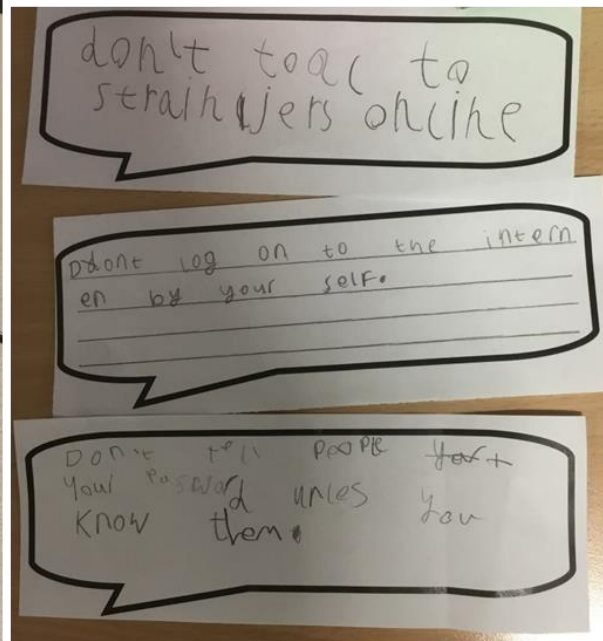 don't toac to
strainjers online
Ddont log on to the intern
en by your self.
Don't tell people your
your password unles you
know them.